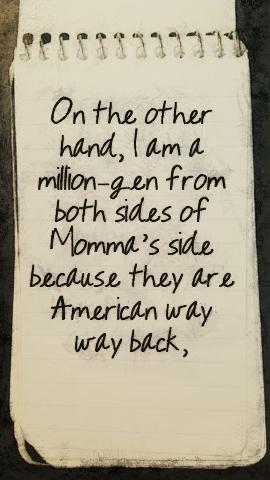 On the other
hand, I am a
million-gen from
both sides of
Momma's side
because they are
American way
way back,